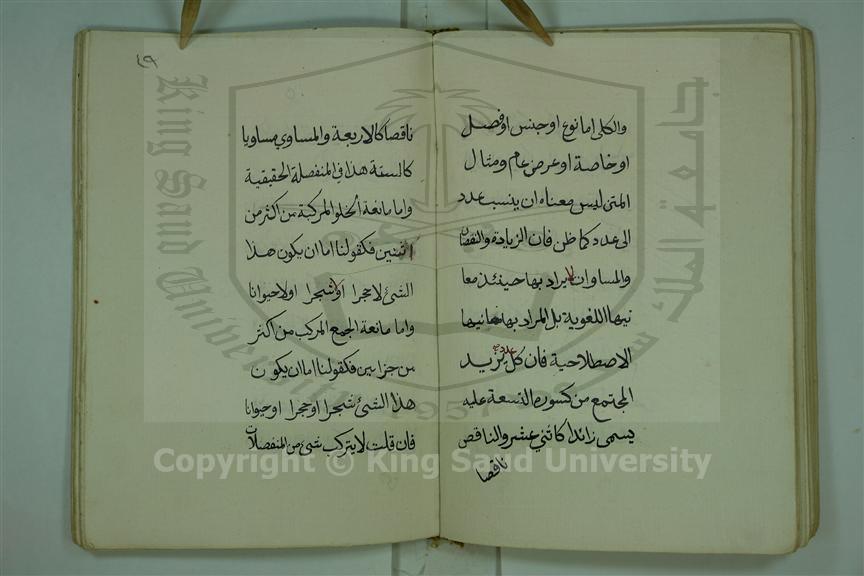 والكلى اما نوع او جنس او فصل
او خاصة او عرض عام ومثال
المتن ليس معناه ان ينسب عدد
الى عدد كما ظن فان الزيادة والنقصان
والمساوات لا يراد بها حينئذ معا
نيها اللغوية بل المراد بها معانيها
الاصطلاحية فان كل عدد يزيد
المجتمع من كسوره التسعة عليه
يسمى زائدا كاثني عشر والناقص
ناقصا
٤٩
ناقصا كالاربعة والمساوي مساويا
كالستة هذا في المنفصلة الحقيقية
واما مانعة الخلو المركبة من اكثر من
اثنين فكقولنا اما ان يكون هذا
الشئ لا حجرا او لا شجرا او لا حيوانا
واما مانعة الجمع المركب من اكثر
من جزايين فكقولنا اما ان يكون
هذا الشئ شجرا او حجرا او حيوانا
فان قلت لا يتركب شئ من المنفصلات
جامعة الملك سعود
King Saud University
1957
Copyright © King Saud University